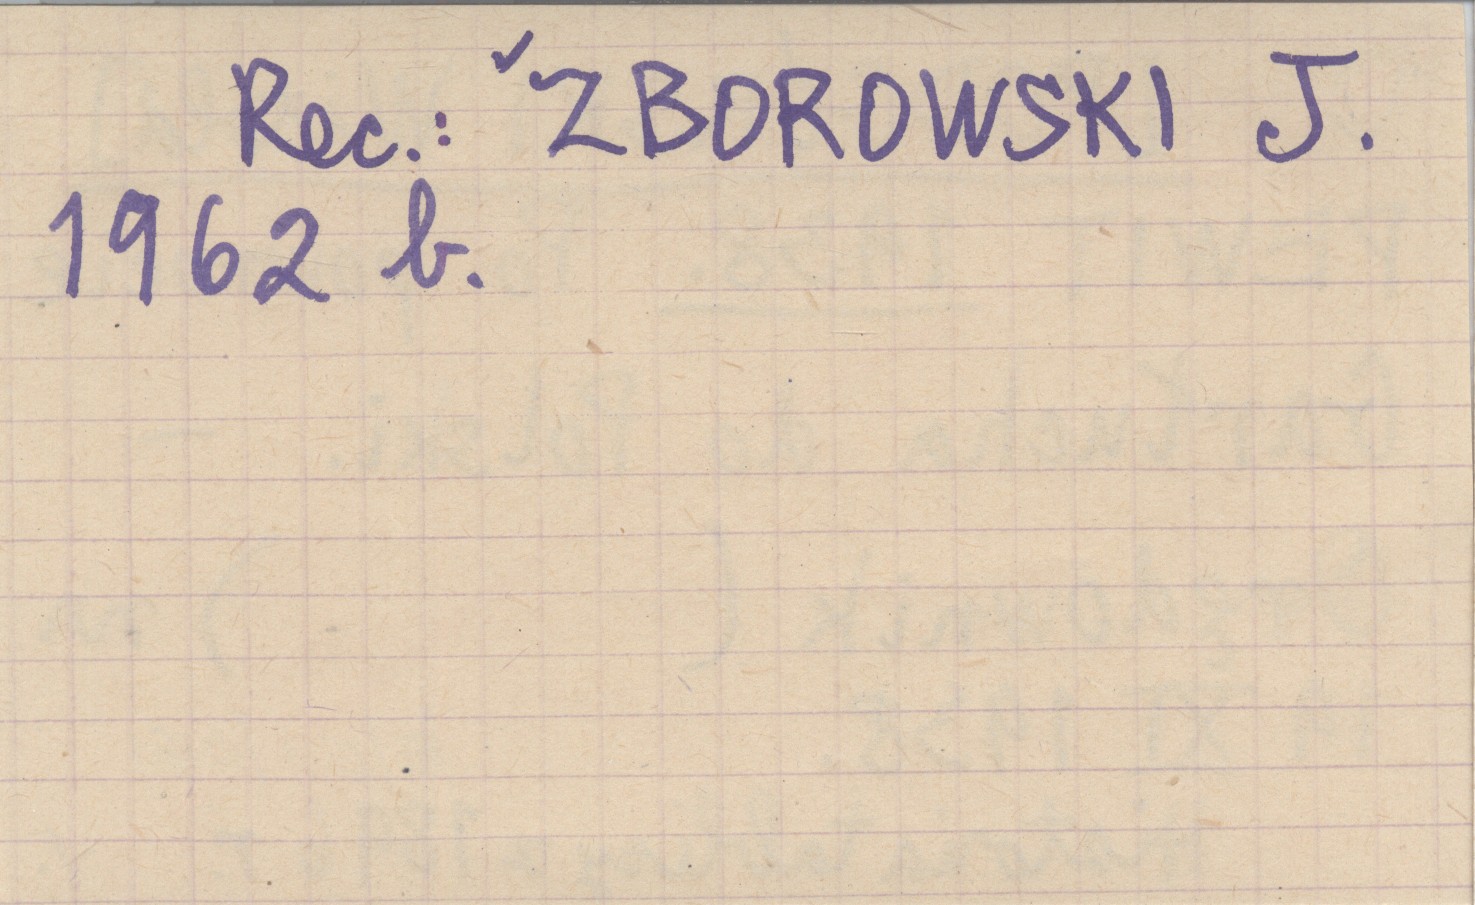 Rec.: ✓ZBOROWSKI J.
1962 b.